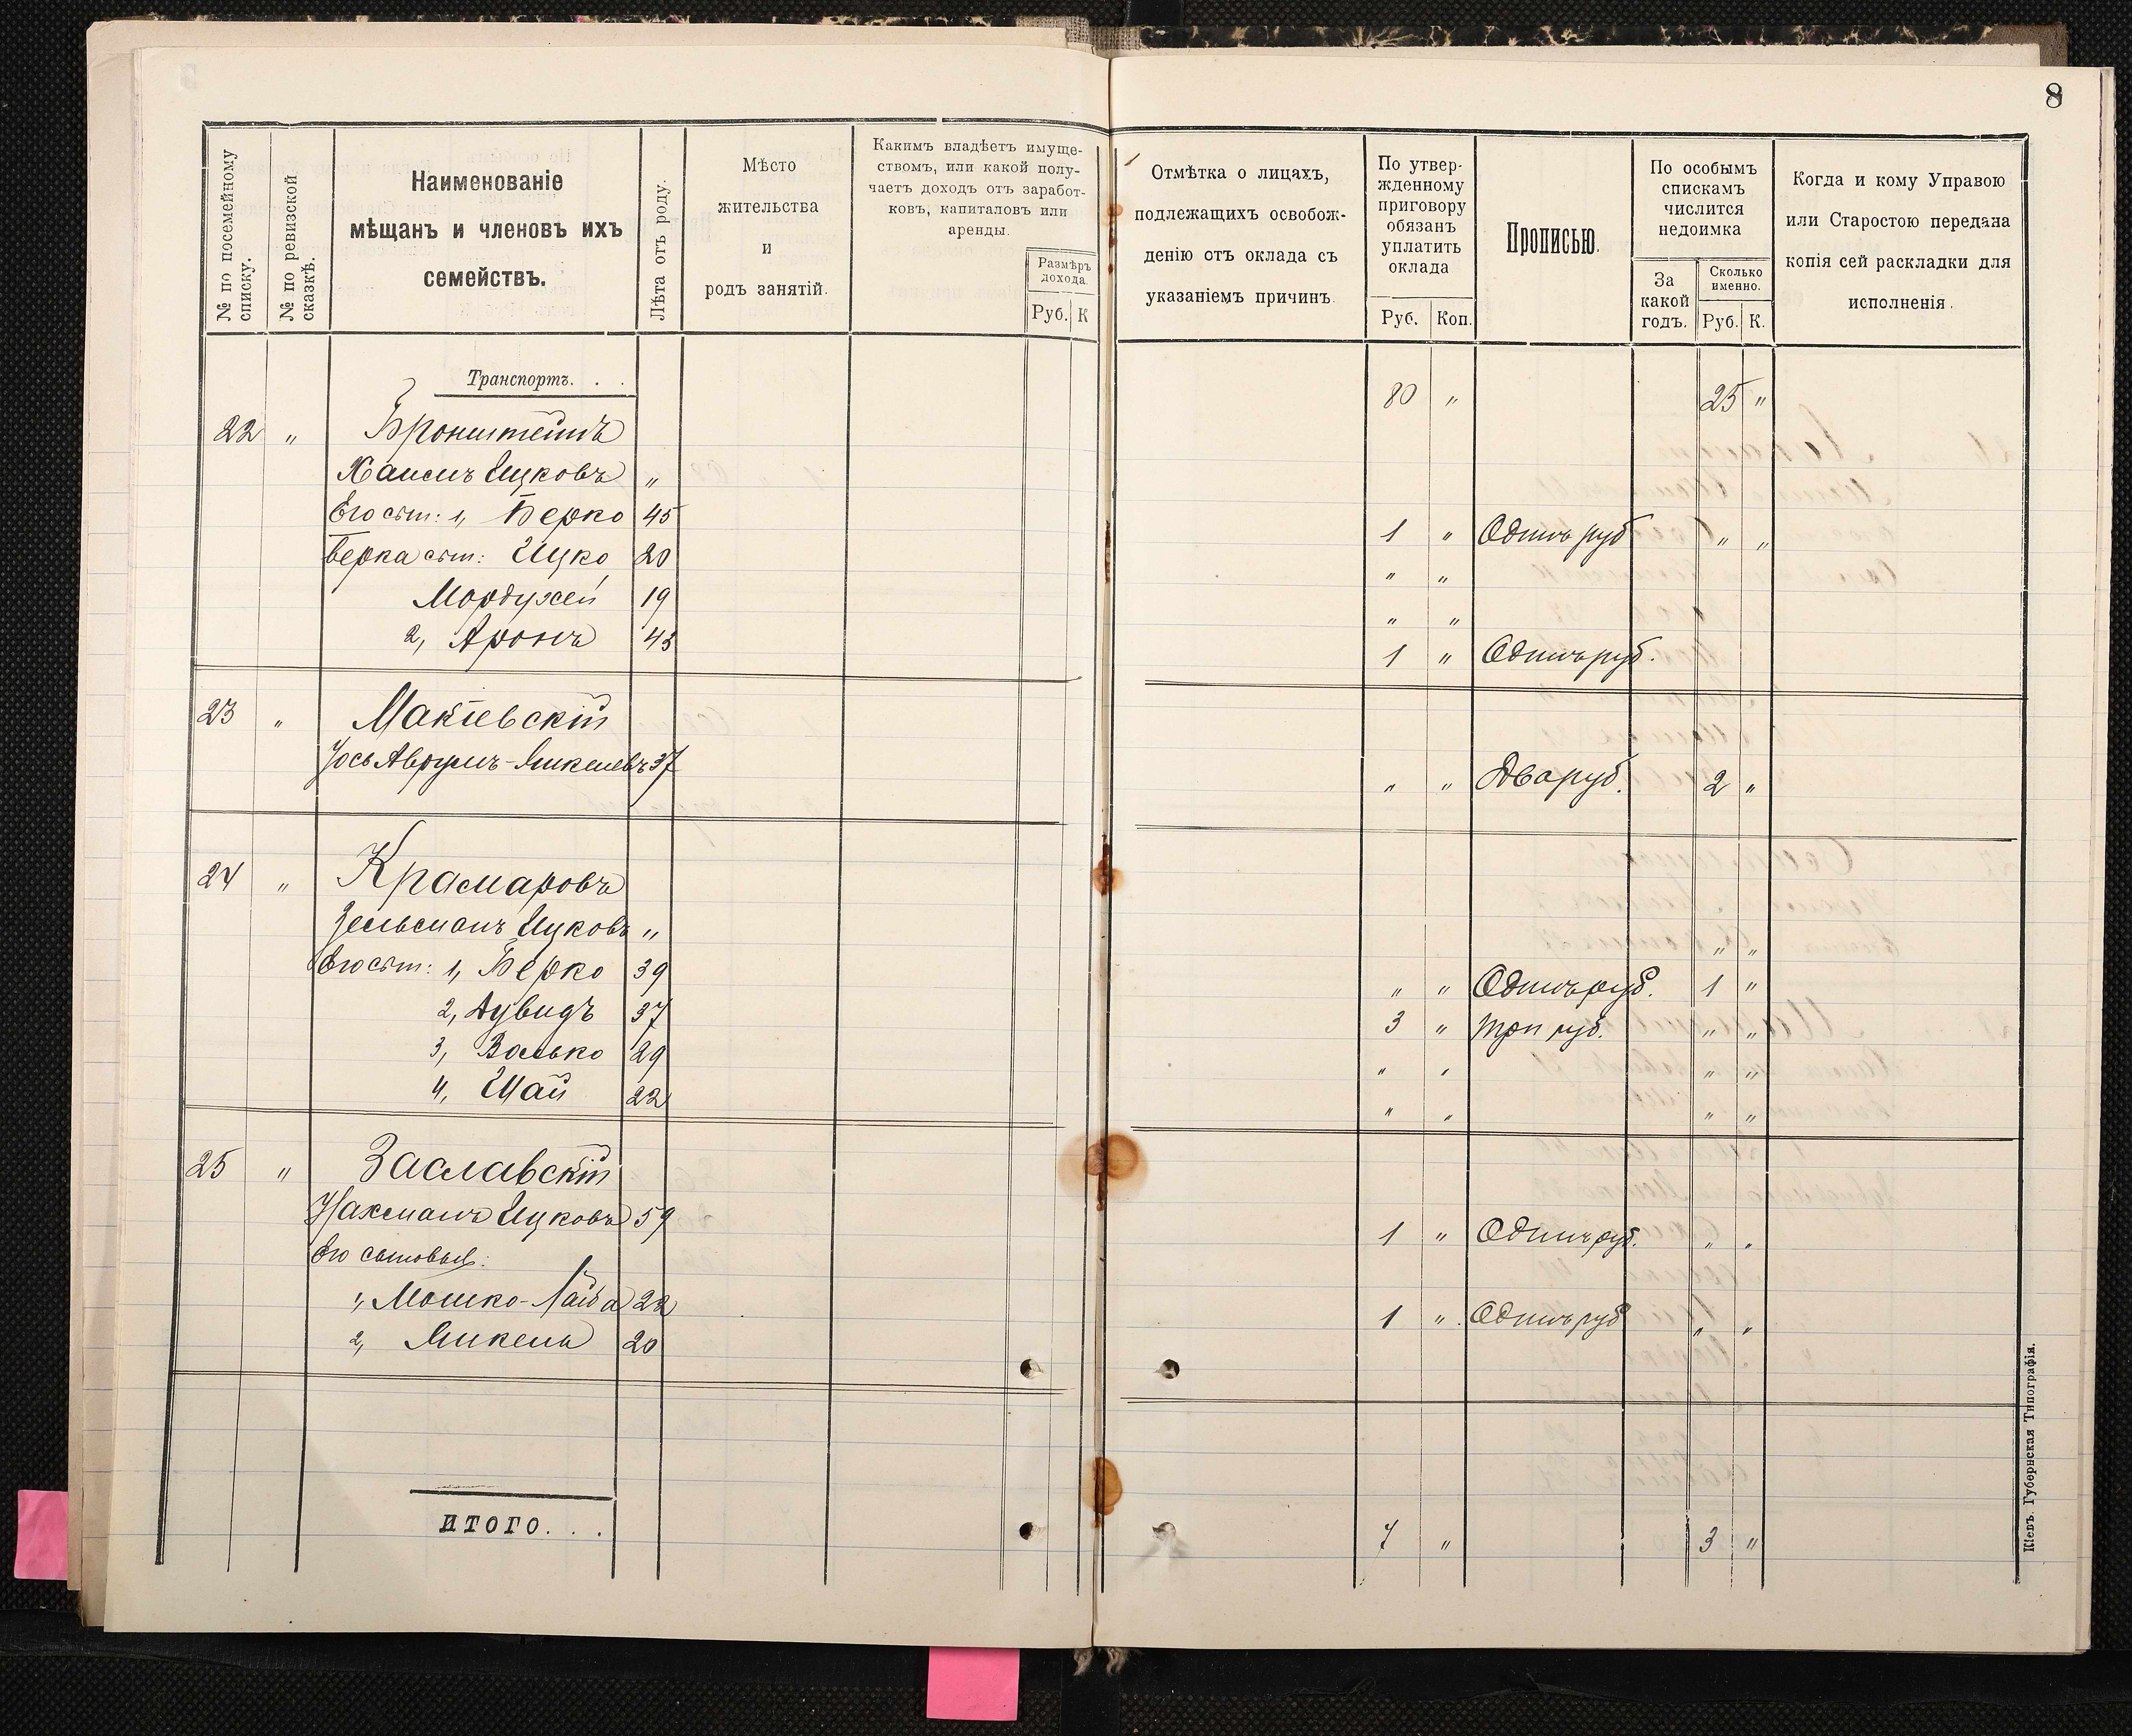 8
№ по посемейному списку.
№ по ревизской сказкѣ.
Наименованіе
мѣщанъ и членовъ ихъ
семействъ.
Лѣта отъ роду.
Мѣсто
жительства
и
родъ занятій.
Какимъ владѣетъ имуще-
ствомъ, или какой полу-
чаетъ доходъ отъ заработ-
ковъ, капиталовъ или
аренды.
Размѣръ
дохода.
Руб. К
Отмѣтка о лицахъ,
подлежащихъ освобож-
денію отъ оклада съ
указаніемъ причинъ.
По утвер-
жденному
приговору
обязанъ
уплатить
оклада
Руб. Коп.
Прописью.
По особымъ
спискамъ
числится
недоимка
За
какой
годъ.
Сколько
именно.
Руб. К.
Когда и кому Управою
или Старостою передана
копія сей раскладки для
исполненія.
Транспортъ. . . 80 " 25 "
22 " Бронштейнъ
Хаимъ Ицковъ "
Его сын: 1, Берко 45 1 " Одинъ руб " "
Берка сын: Ицко 20 " "
Мордухей 19 " "
2, Аронъ 43 1 " Одинъ руб.
23 " Макіевскій
Іось Аврумъ-Микелевъ 37 " " Два руб. 2 "
24 " Крамаровъ
Зельманъ Ицковъ " " "
Его сын: 1, Берко 39 " " Одинъ руб. 1 "
2, Дувидъ 37 3 " Три руб. " "
3, Волько 29 " " " "
4, Шай 22 " " " "
25 " Заславскій
Нахманъ Ицковъ 59 1 " Одинъ руб. " "
Его сыновья:
1, Мошко-Лайба 22 1 " Одинъ руб " "
2, Микель 20
ИТОГО. . . 7 " 3 "
Кіевъ. Губернская Типографія.